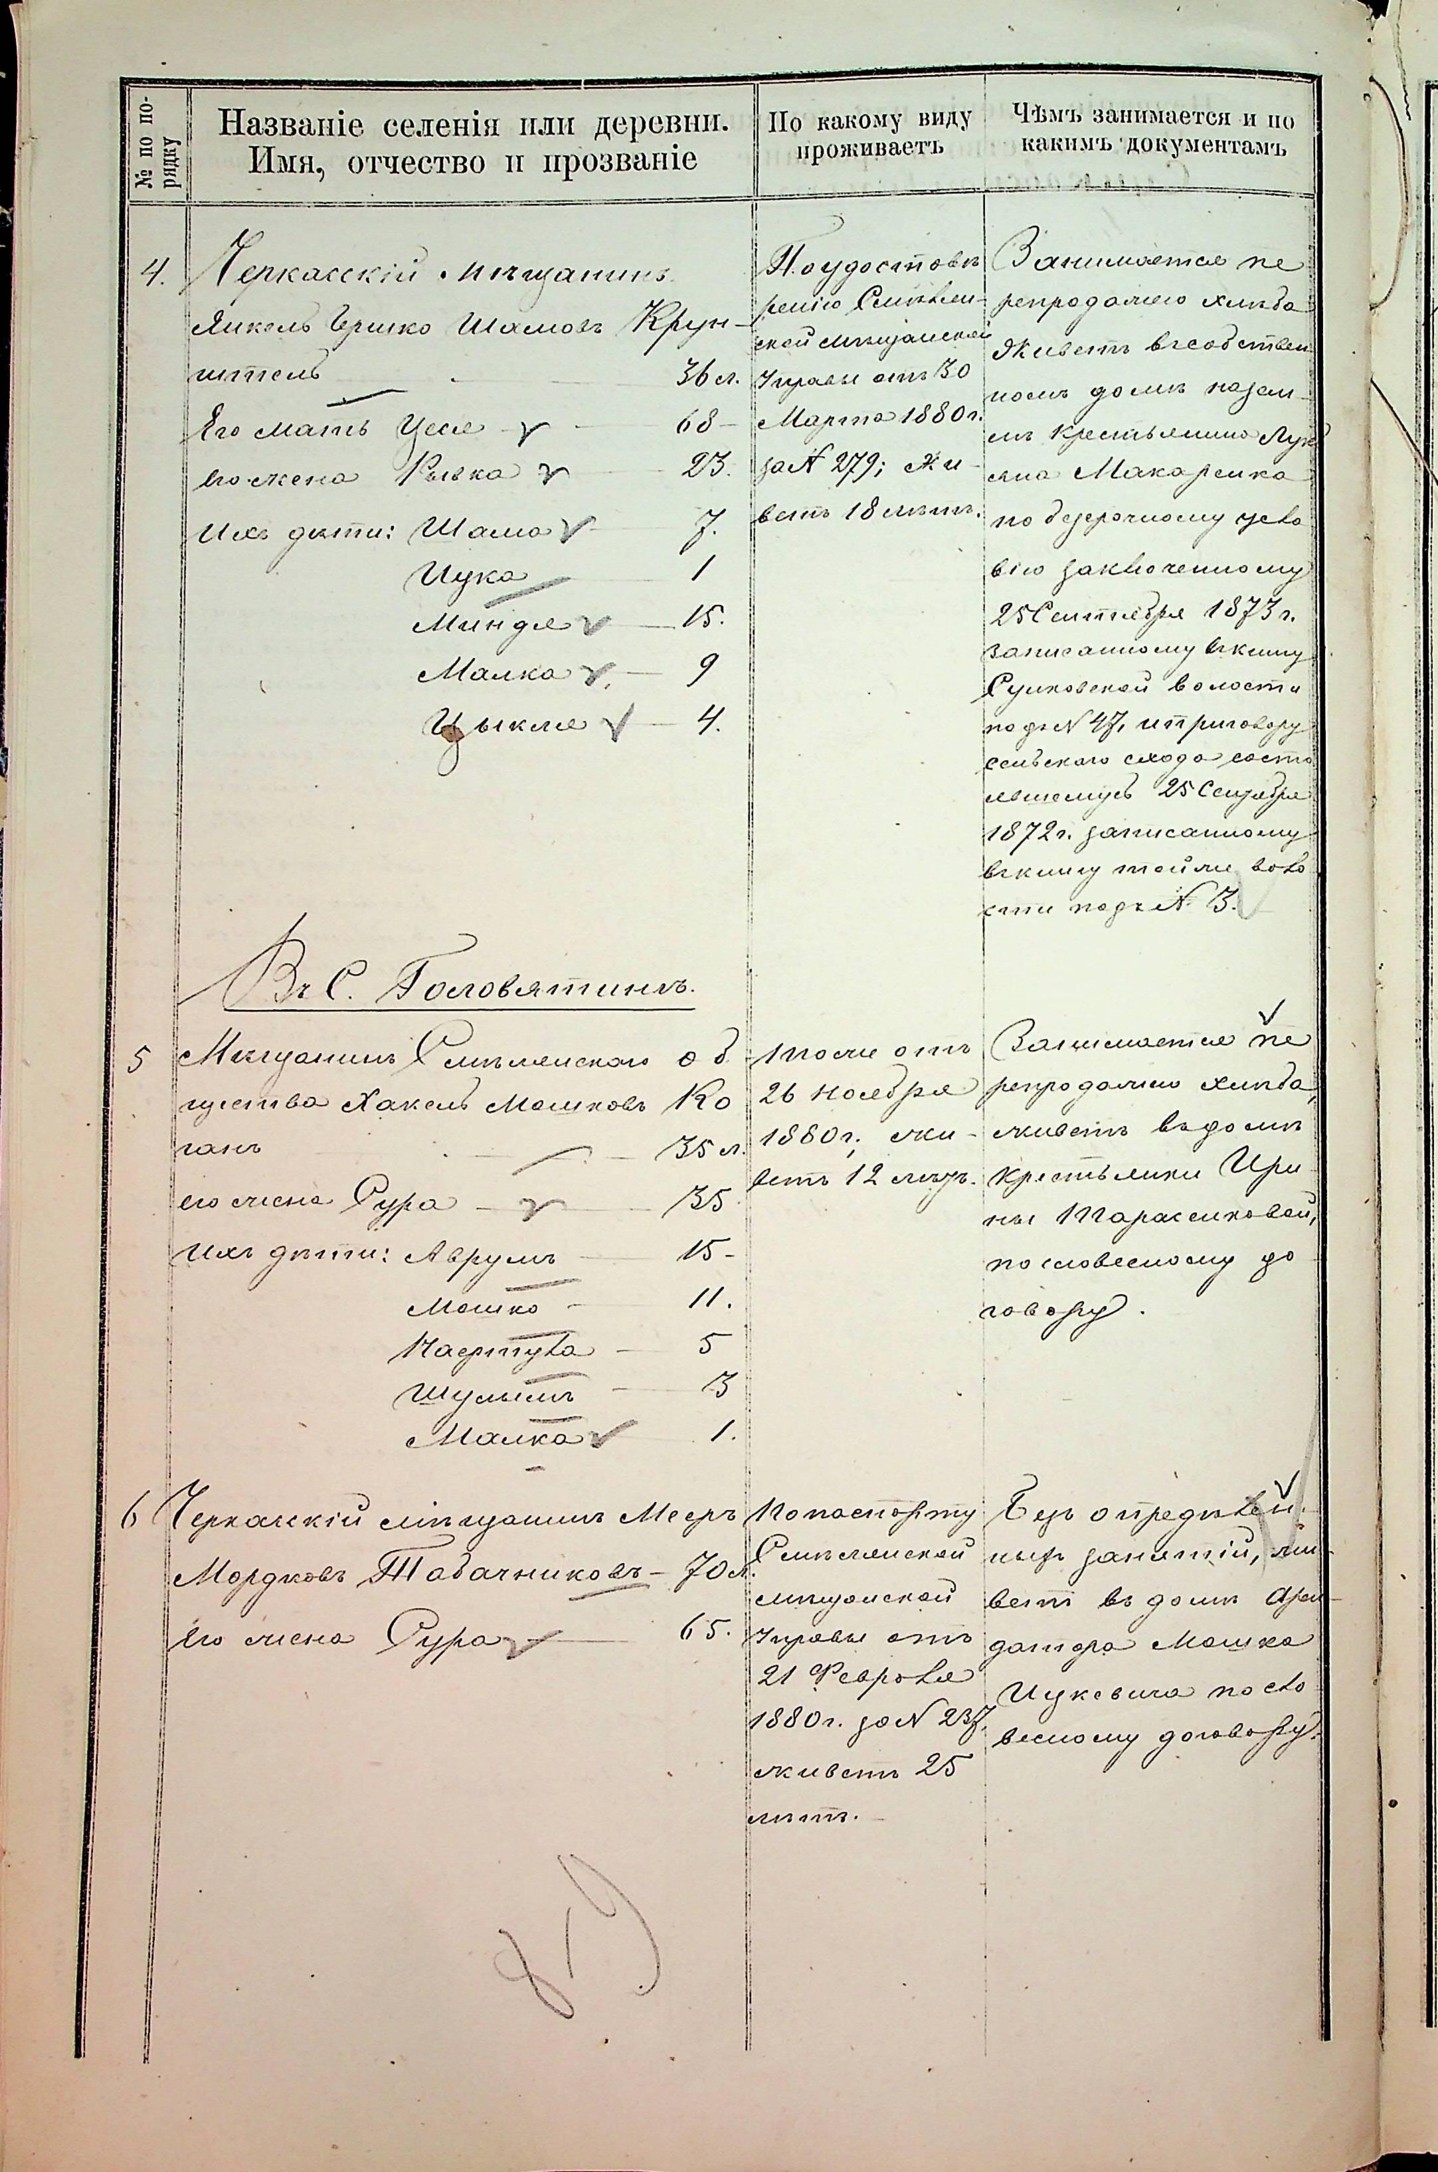 № по по-
рядку
Названіе селенія или деревни.
Имя, отчество и прозваніе
По какому виду
проживаетъ
Чѣмъ занимается и по
какимъ документамъ
4.
Черкасскій мѣщанинъ
Янкель Гершко Шамовъ Крун-
штель 36 л.
Его мать Цеся 68
его жена Рывка 23.
Ихъ дѣти: Шама 7.
Ицко 1
Миндля 15.
Малка 9
Цыкля 4.
По удостовѣ
ренію Смѣлян-
ской мѣщанской
Управы отъ 30
Марта 1880 г.
за № 279; жи-
ветъ 18 лѣтъ.
Занимается пе
репродажею хлѣба
Живетъ въ собствен
номъ домѣ на зем-
лѣ крестьянина Лукь
яна Макаренка
по безсрочному усло
вію заключенному
25 Сентября 1873 г.
записанному въ книгу
Сунковской волости
подъ № 47, и приговору
сельскаго схода состо
явшемусь 25 Сентября
1872 г. записанному
въ книгу той же воло
сти подъ № 3.
Въ С. Головятинѣ.
5
Мѣщанинъ Смѣлянскаго об
щества Хакель Мошковъ Ко
ганъ 35 л.
его жена Сура 35
Ихъ дѣти: Аврумъ 15
Мошко 11.
Нафтула 5
Шулымъ 3
Малка 1.
тоже отъ
26 Ноября
1880 г., жи-
ветъ 12 лѣтъ.
Занимается пе
репродажею хлѣба,
живетъ въ домѣ
крестьянки Ири
ны Тарасенковой,
по словесному до
говору.
6
Черкасскій мѣщанинъ Мееръ
Мордковъ Табачниковъ 70 л.
Его жена Сура 65.
По паспорту
Смѣлянской
мѣщанской
Управы отъ
21 Февраля
1880 г. за № 237,
живетъ 25
лѣтъ.
Безъ опредѣлен-
ныхъ занятій, жи-
ветъ въ домѣ арен-
датора Мошка
Ицкевича по сло
весному договору.
8/9